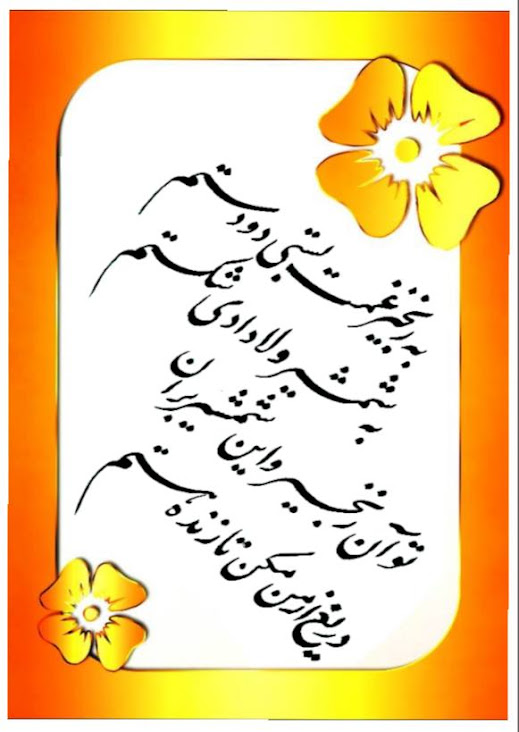 به زنجیر غمت بستی دو دستم
به شمشیر ولا دادی شکستم
تو آن زنجیر و این شمشیر بران
دریغ از من مکن تا زنده هستم